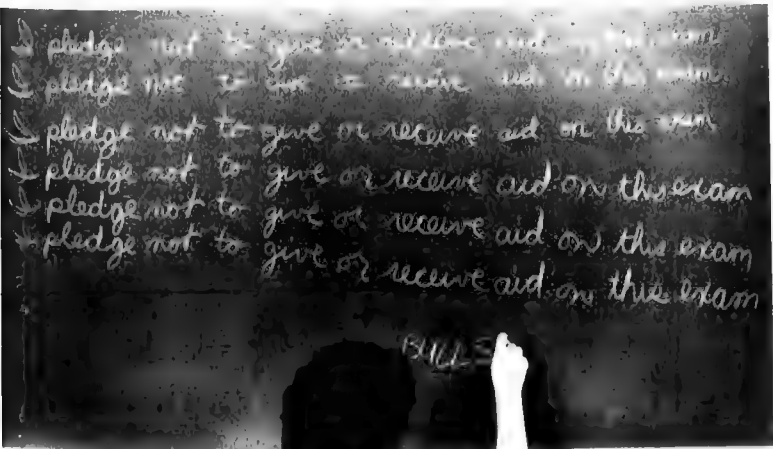 I pledge not to give or receive aid on this exam
I pledge not to give or receive aid on this exam
I pledge not to give or receive aid on this exam
I pledge not to give or receive aid on this exam
I pledge not to give or receive aid on this exam
I pledge not to give or receive aid on this exam